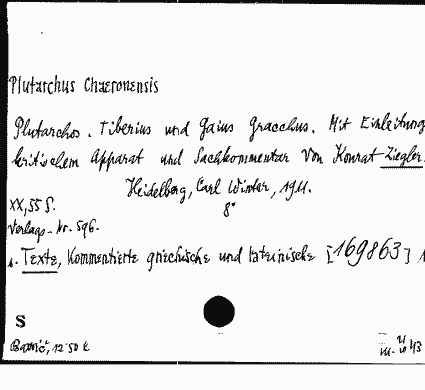 Plutarchus Chaeronensis
Plutarchos. Tiberius und Gaius Gracchus. Mit Einleitung
kritischem Apparat und Sachkommentar von Konrat Ziegler.
Heidelberg, Carl Winter, 1911.
XX, 55 S. 8°
Verlags-Nr. 596.
s. Texte, Kommentierte griechische und lateinische [169863]
S
12·50 K